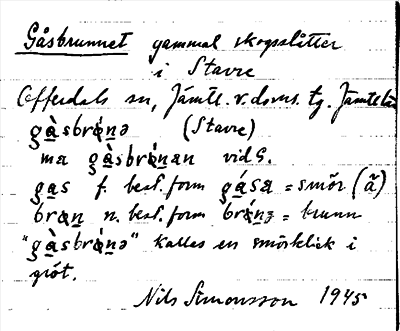 Gåsbrunnet gammal skogsslåtter
i Stavre
Offerdals sn, Jämtl. v. doms. tg. Jämtl. län
gàsbrǿnə (Stavre)
ma gàsbrǿnan vid G.
gas f. best. form gása = smör (ã)
brøn n. best. form brǿnə = brunn
"gàsbrǿnə" kallas en smörklick i
gröt.
Nils Simonsson 1945